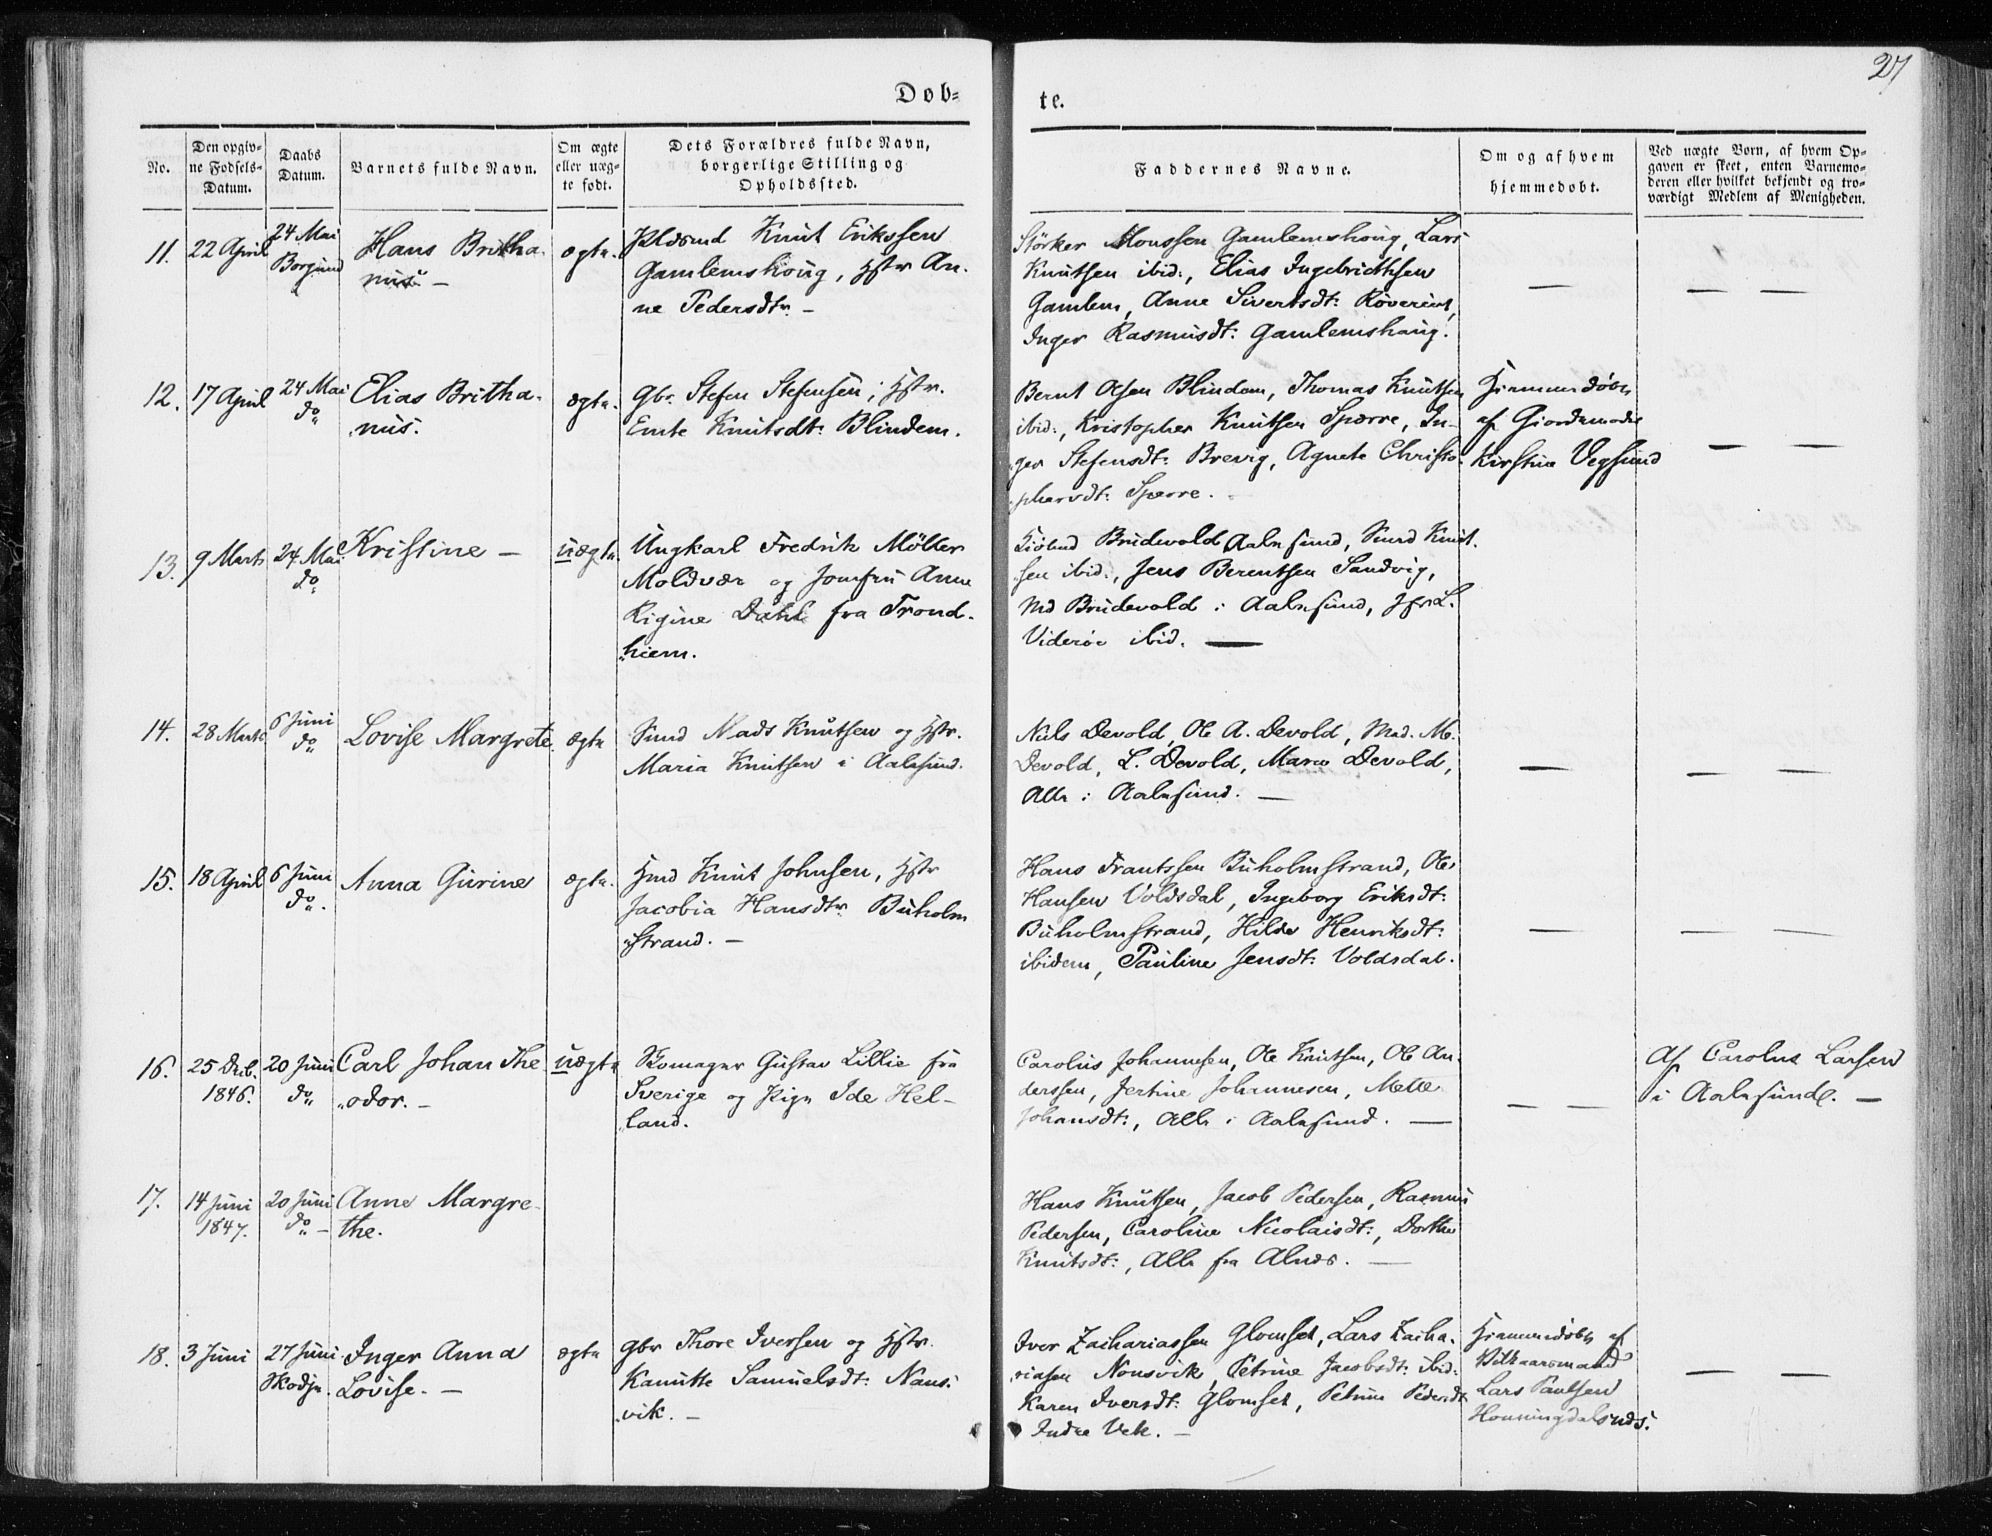 27
Døb=
te.
No.
Den opgiv=
ne Fødsels=
Datum.
Daabs
Datum.
Barnets fulde Navn.
Om ægte
eller uæg=
te født.
Dets Forældres fulde Navn,
borgerlige Stilling og
Opholdssted.
Faddernes Navne.
Om og af hvem
hjemmedøbt.
Ved uægte Børn, af hvem Op=
gaven er skeet, enten Barnemo=
deren eller hvilket bekjendt og tro=
værdigt Medlem af Menigheden.
11.
22 April
24 Mai
Borgund
Hans Britha-
nus. –
ægte.
Knut Erikssen
Gamlemshoug, Hstr An-
ne Pedersdtr. –
Størker Monssen Gamlemshoug, Lars
Knutsen ibid:, Elias Ingebrichtsen
Gamlem, Anne Sivertsdt:
Inger Rasmusdt: Gamlemshaug.
—
— —
12.
17 April
24 Mai
do
Elias Britha-
nus.
ægte.
Gbr. Stefen Stefensen, Hstr.
Knutsdt: Blindem.
Bernt Olsen Blindem, Thomas Knutsen
ibid:, Kristopher Knutsen Sperre, In-
ger Stefensdt: Brevig, Agnete Christo-
phersdt: Sperre. –
Hjemmedøbt
af Giordemoder
Kirstine Vegsund
— —
13.
9 Marts
24 Mai
do
Kristine –
uægte
Ungkarl Fredrik Möller
Moldvær og Jomfru Anne
Rigine Dahl fra Trond-
hiem.
Brudevold Aalesund, Knut-
sen ibid:, Jens Berentsen Sandvig,
Md Brudevold i Aalesund, Jfr L.
Viderøe ibid. —
14.
28 Marts
6 Juni
do
Lovise Margrete
ægte
Mads Knutsen og Hstr.
Maria Knutsen i Aalesund.
Nils Devold, Ole A. Devold, Mad. M.
Devold, L. Devold, Maren Devold,
Alle i Aalesund. —
—
— —
15.
18 April
6 Juni
do.
Anna Gurine
ægte.
Hmd Knut Johnsen, Hstr
Jacobia Hansdtr. Buholm
strand. –
Hans Frantssen Buholmstrand, Ole
Hansen Voldsdal, Ingeborg Eriksdt:
Buholmstrand, Hilde Henriksdt:
ibidem, Pauline Jensdt: Voldsdal.
—
— —
16.
25 Deb.
1846.
20 Juni
do
Carl Johan The
odor. –
uægte
Skomager Gustav Lillie fra
Sverige og Pige Ide Hel-
land.
Carolus Johannesen, Ole Knutsen, Ole An-
derssen, Jertine Johannesen, Mette
Johansdt:, Alle i Aalesund. —
— —
Af Carolus Larsen
i Aalesund. –
17.
14 Juni
1847.
20 Juni
do –
Anne Margre-
the.
Hans Knutsen, Jacob Pedersen, Rasmus
Pedersen, Caroline Nicolaisdt:, Dorthe
Knutsdt:, Alle fra Alnæs. —
18.
3 Juni
27 Juni
Skodje.
Inger Anna
Lovise. –
ægte
Gbr Thore Iversen og Hstr.
Kanutte Samuelsdt: Nans-
vik. –
Iver Zachariassen Glomset, Lars Zacha-
riasen Nonsvik, Petrine Jacobsdt: ibid:
Karen Iversdt: Glomset, Petrine Pedersdt
Indre Vik. –
Hjemmedøbt af
Vilkaarsmand
Lars Paulsen
Honningdalsnæs.
— —